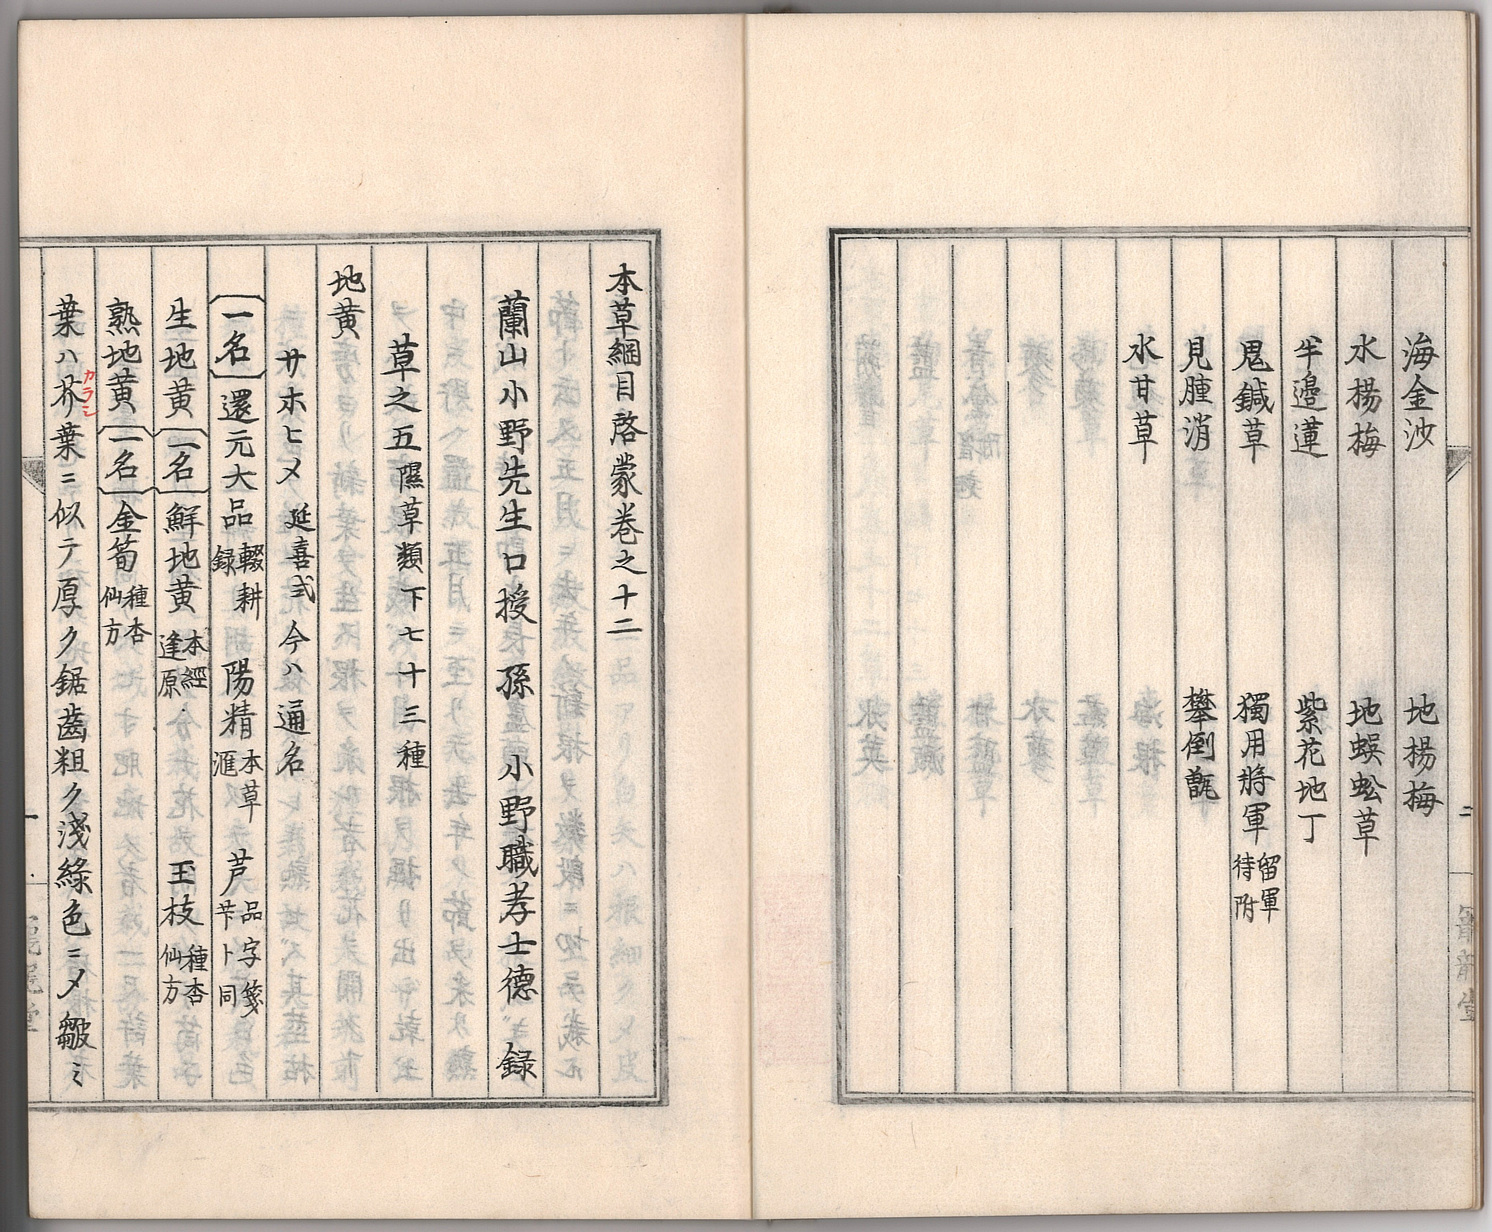 海金沙　地楊梅
水楊梅　地蜈蚣草
半邉蓮　紫花地丁
鬼鍼草　獨用將軍 留軍待附
見腫消　攀倒甑
水甘草
本草綱目啓蒙巻之十二
蘭山小野先生口授　孫　小野職孝士德　録
草之五 隰草類下七十三種
地黄
サホヒメ 延喜式 今ハ通名
一名 還元大品 輟耕録 陽精 本草滙 芦 品字箋 芐ト同
生地黄 一名 鮮地黄 本經逢原 玉枝 種杏仙方
熟地黄 一名 金筍 種杏仙方
葉ハ芥葉ニ似テ厚ク鋸齒粗ク淺綠色ニメ皺ミ
カラシ
二
一